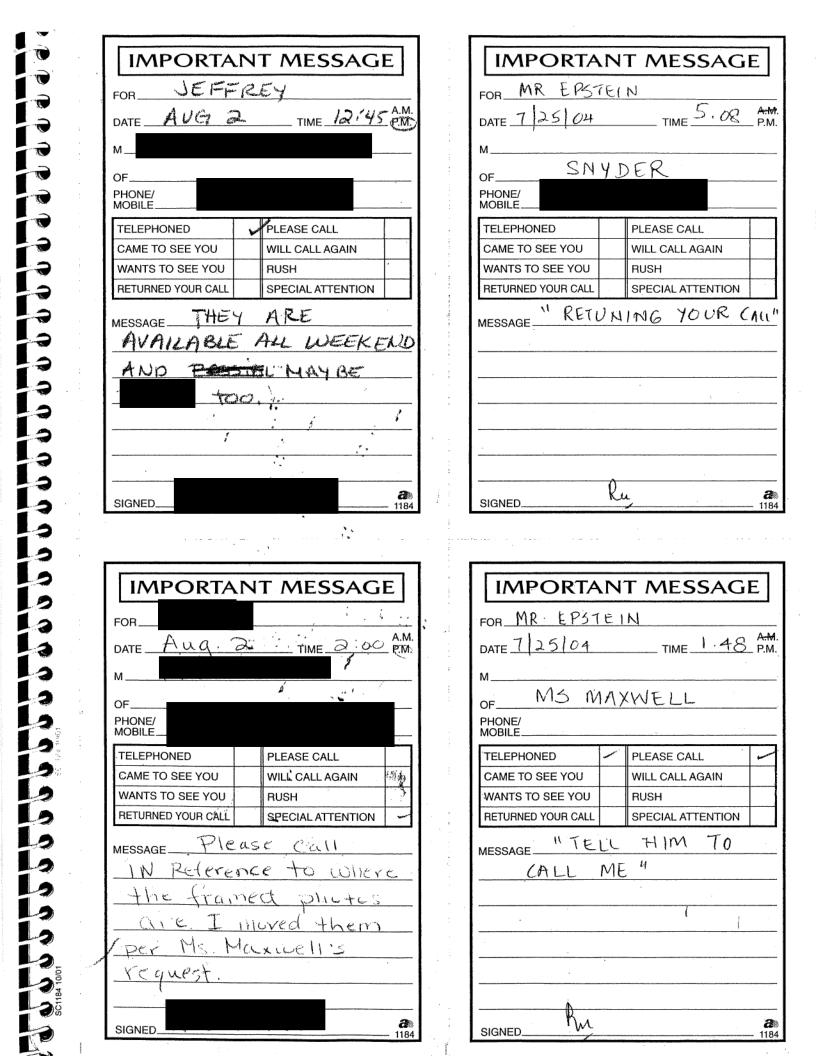 IMPORTANT MESSAGE
FOR JEFFREY
DATE AUG 2 TIME 12:45 A.M. P.M.
M
OF
PHONE/
MOBILE
TELEPHONED ✓ PLEASE CALL
CAME TO SEE YOU WILL CALL AGAIN
WANTS TO SEE YOU RUSH
RETURNED YOUR CALL SPECIAL ATTENTION
MESSAGE THEY ARE
AVAILABLE ALL WEEKEND
AND MAYBE
TOO.
SIGNED
1184
IMPORTANT MESSAGE
FOR MR EPSTEIN
DATE 7/25/04 TIME 5.08 A.M. P.M.
M
OF SNYDER
PHONE/
MOBILE
TELEPHONED PLEASE CALL
CAME TO SEE YOU WILL CALL AGAIN
WANTS TO SEE YOU RUSH
RETURNED YOUR CALL SPECIAL ATTENTION
MESSAGE "RETUNING YOUR CALL"
SIGNED
1184
IMPORTANT MESSAGE
FOR
DATE Aug. 2 TIME 2:00 A.M. P.M.
M
OF
PHONE/
MOBILE
TELEPHONED PLEASE CALL
CAME TO SEE YOU WILL CALL AGAIN
WANTS TO SEE YOU RUSH
RETURNED YOUR CALL SPECIAL ATTENTION ✓
MESSAGE Please call
IN Reference to where
the framed photos
are. I moved them
per Ms. Maxwell's
request.
SIGNED
1184
IMPORTANT MESSAGE
FOR MR. EPSTEIN
DATE 7/25/04 TIME 1.48 A.M. P.M.
M
OF MS MAXWELL
PHONE/
MOBILE
TELEPHONED ✓ PLEASE CALL ✓
CAME TO SEE YOU WILL CALL AGAIN
WANTS TO SEE YOU RUSH
RETURNED YOUR CALL SPECIAL ATTENTION
MESSAGE "TELL HIM TO
CALL ME"
SIGNED
1184
SC1184 10/01